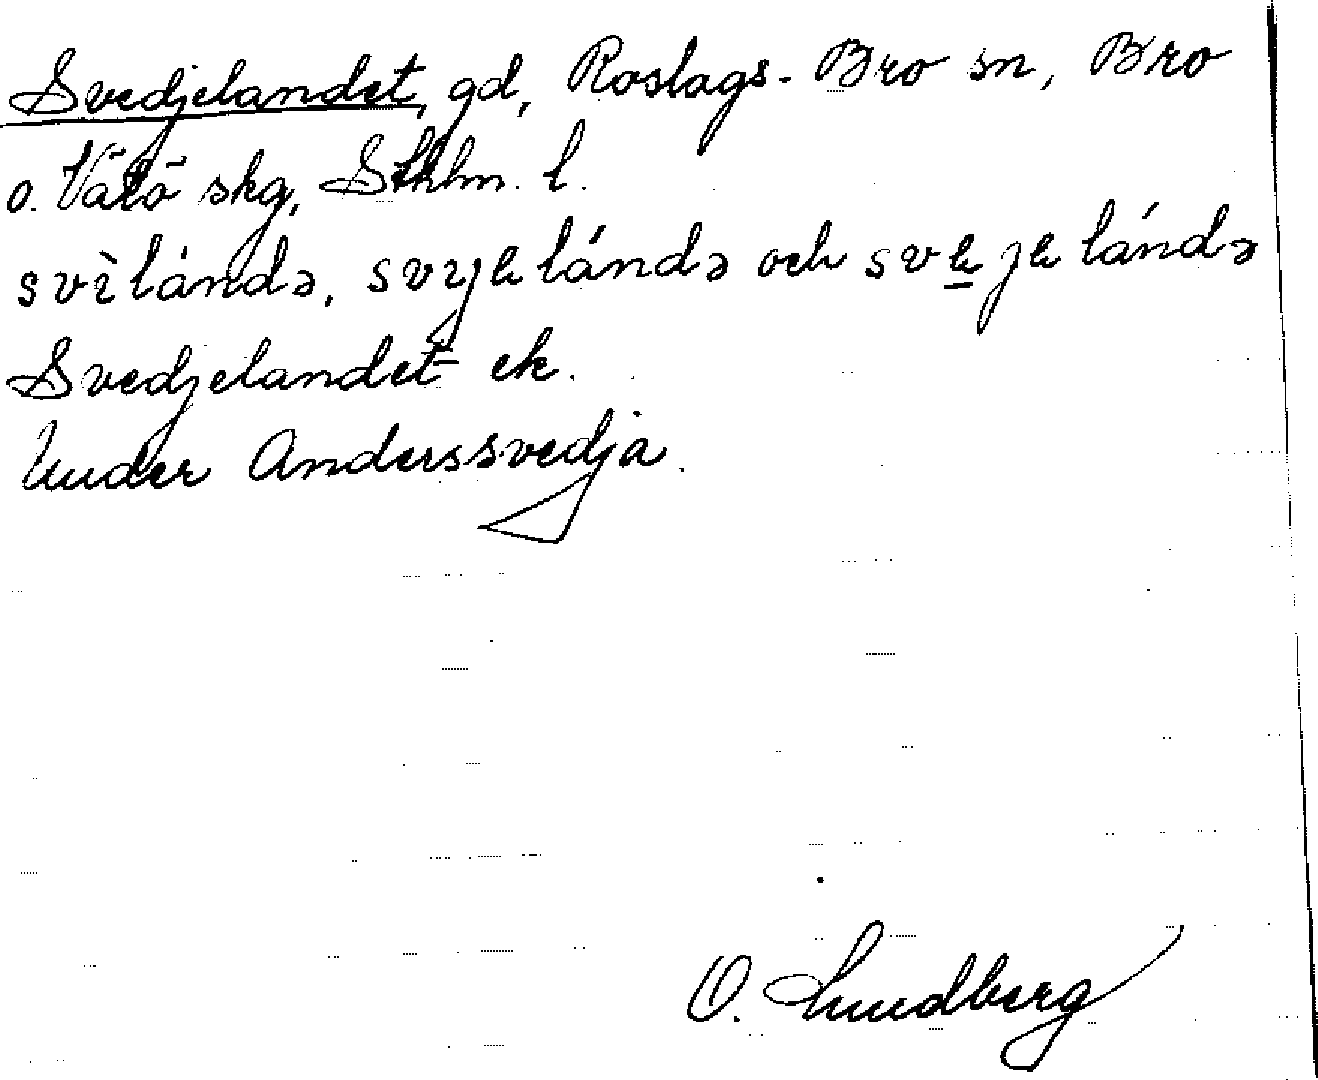 Svedjelandet, gd, Roslags-Bro sn, Bro
o. Vätö skg, Sthlm. l.
svìlándə, svijelándə och svejelándə
Svedjelandet ek.
Under Anderssvedja.
O. Lundberg